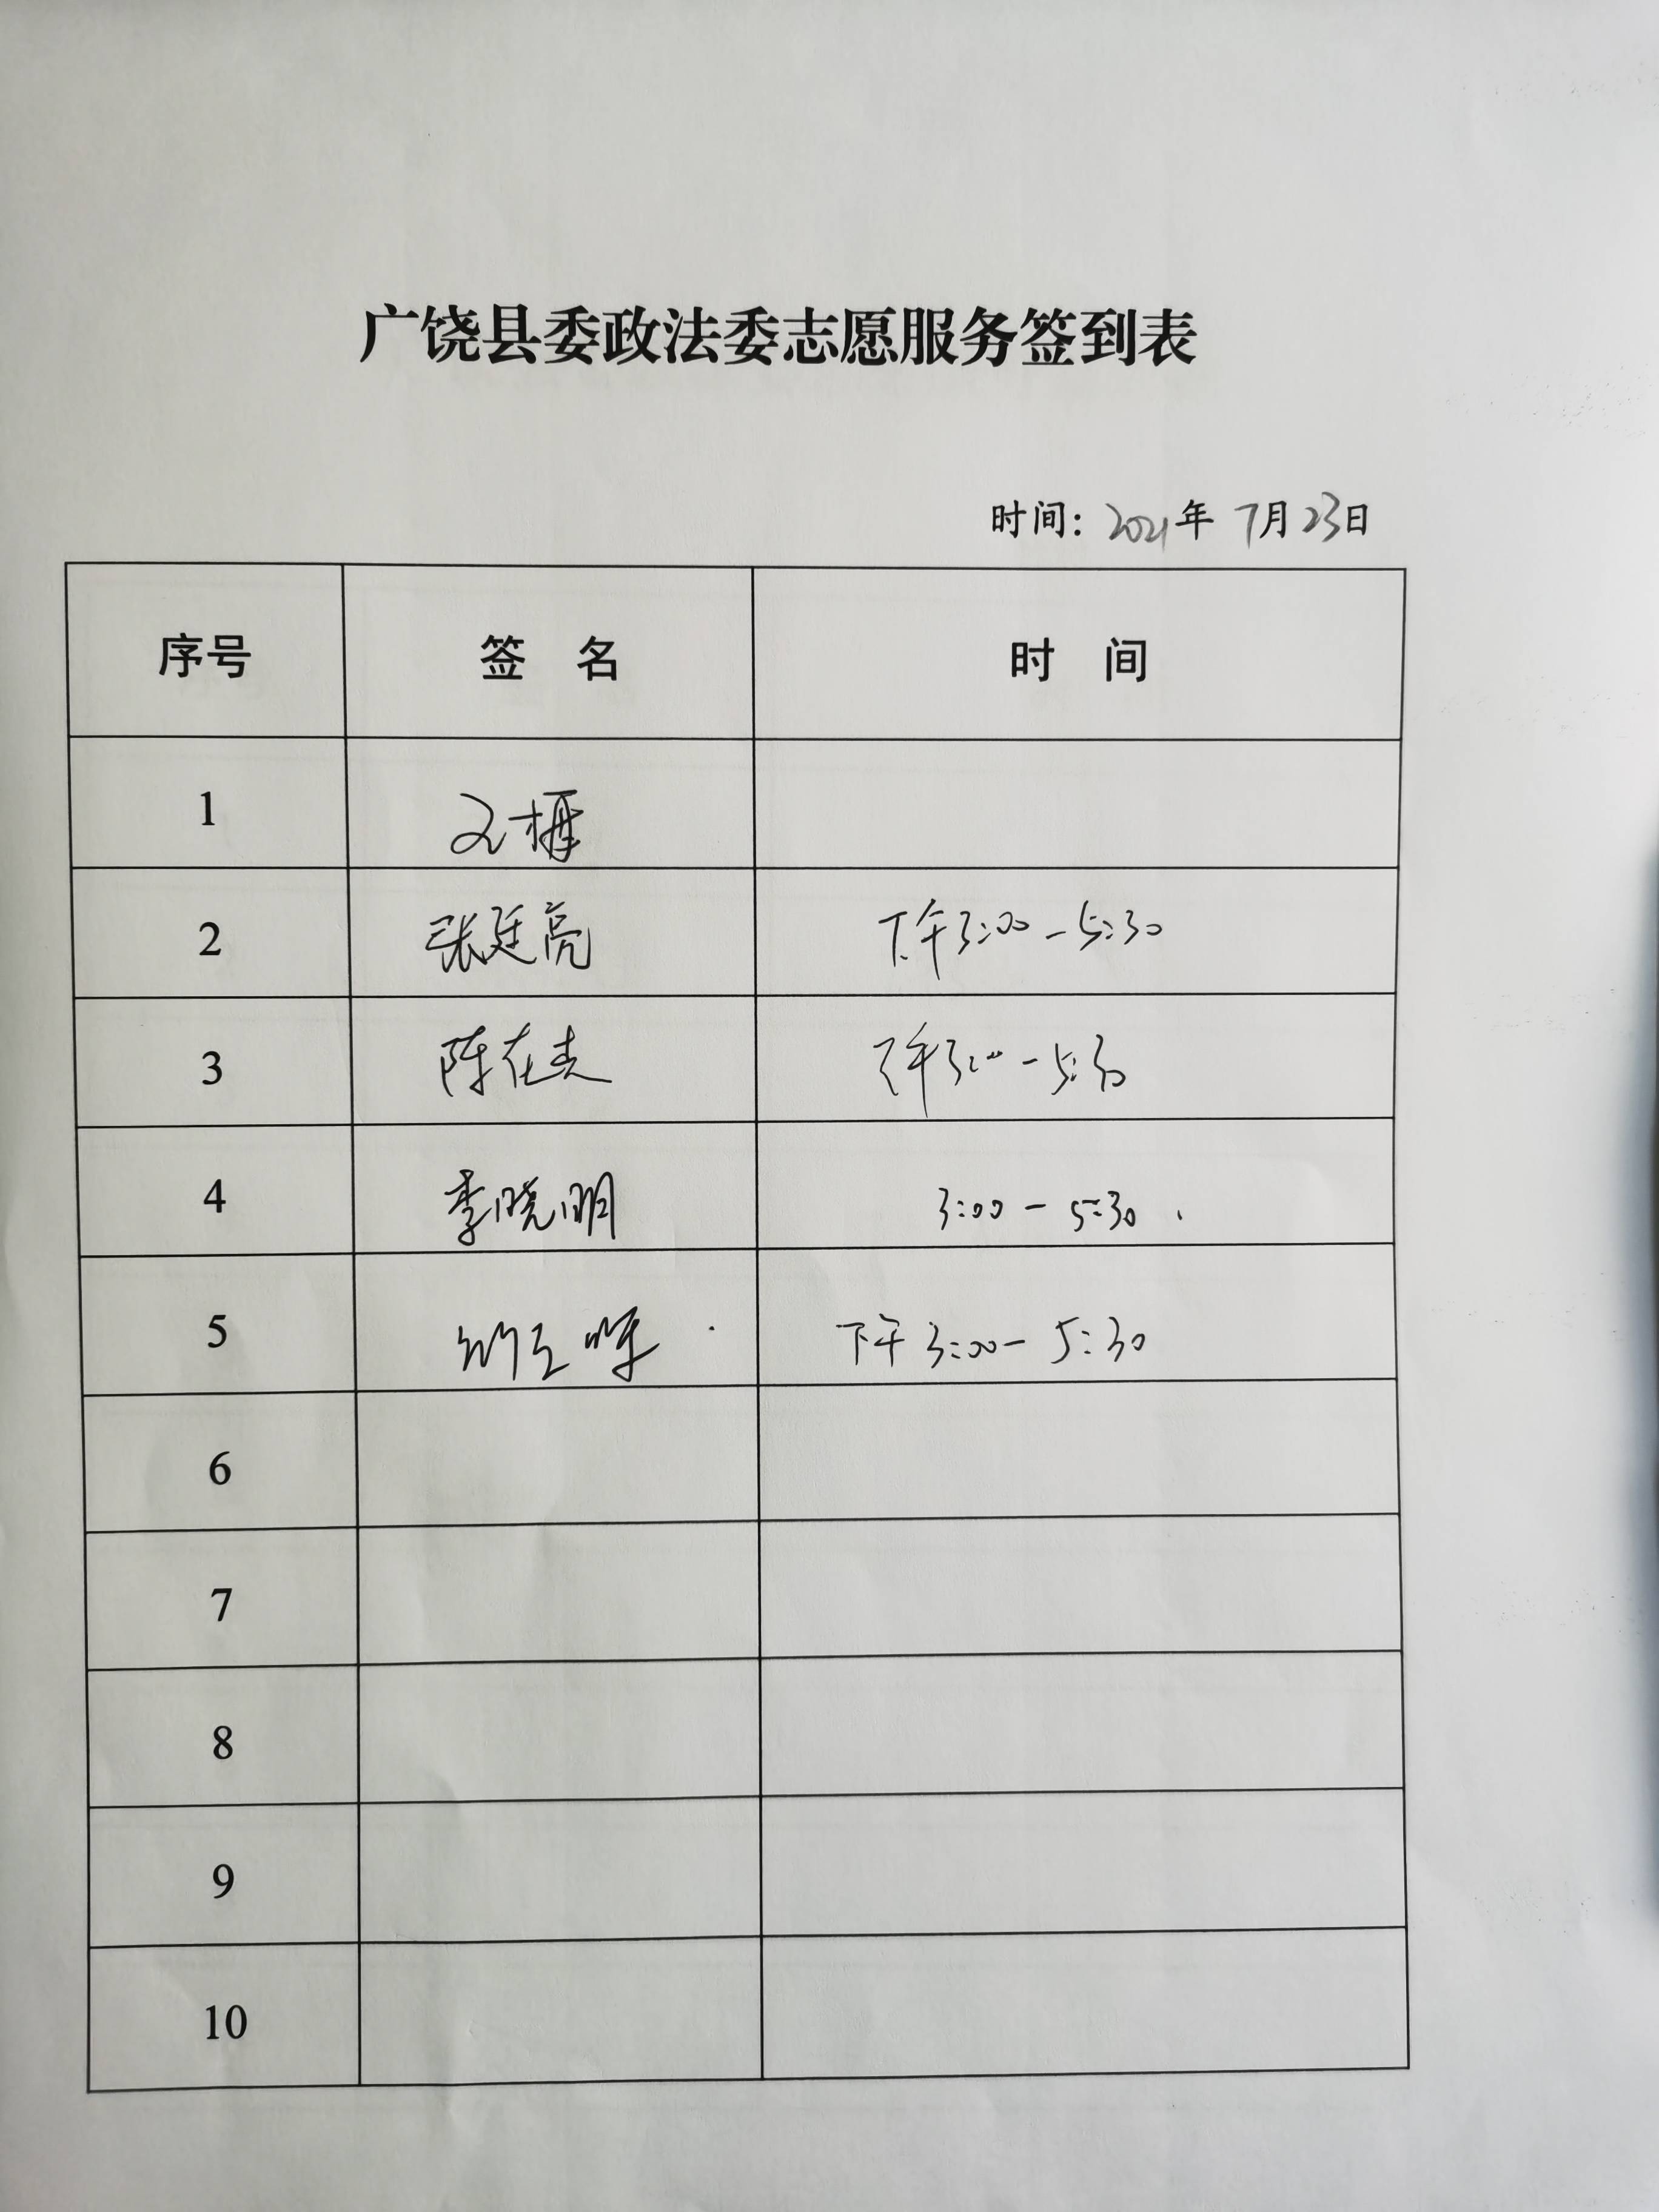 广饶县委政法委志愿服务签到表
时间：2021年7月23日
序号 签名 时间
1
2 张廷亮 下午3:00-5:30
3 陈在杰 下午3:00-5:30
4 李晓明 3:00-5:30
5 下午3:00-5:30
6
7
8
9
10